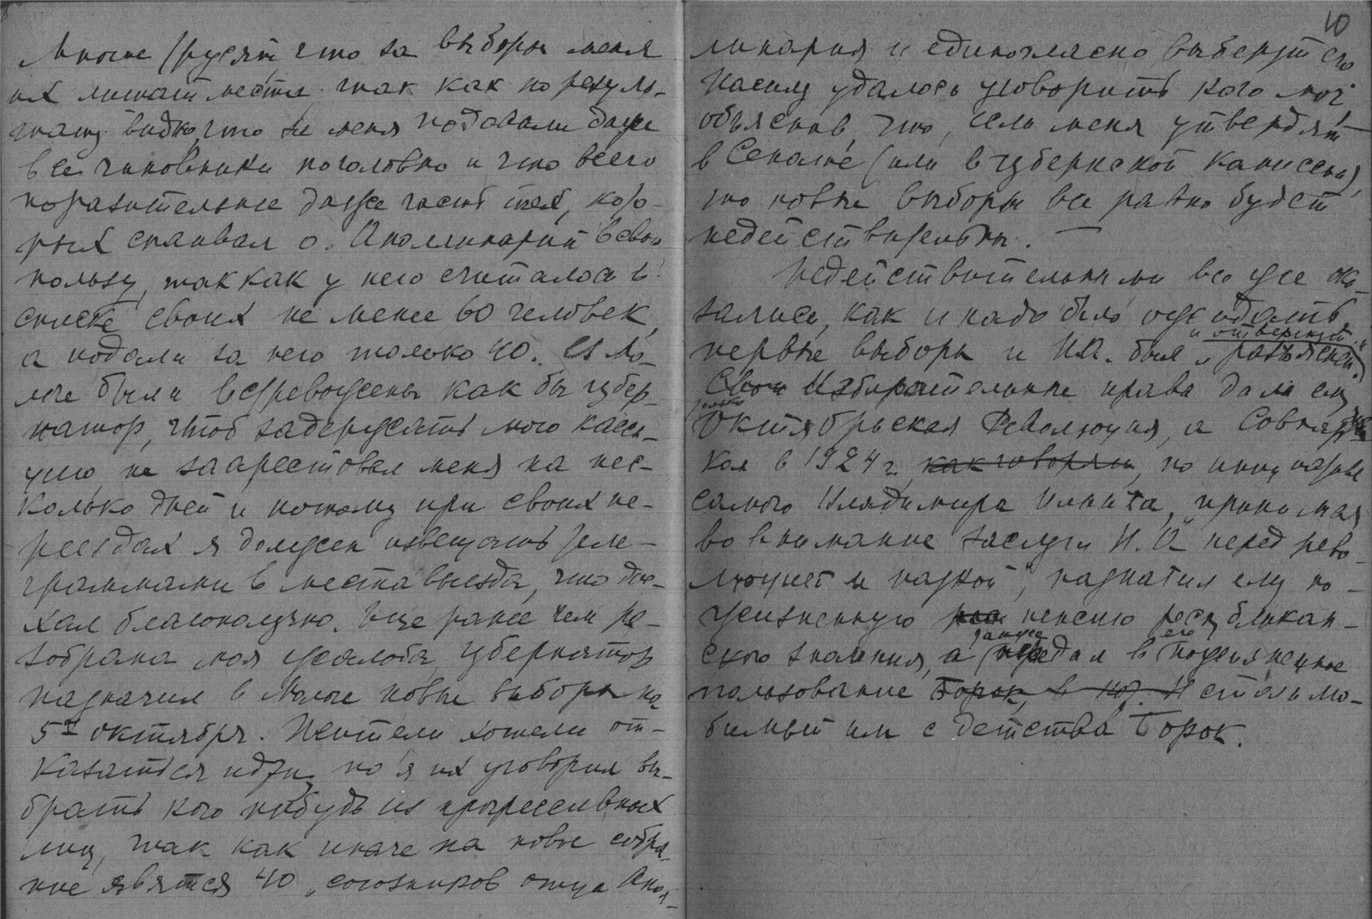 Многие трусят что за выборы меня
их лишат места так как по резуль-
тату видно, что за меня подавали даже
все чиновники поголовно и что всего
поразительнее даже часть тех, кото-
рых спаивал о. Аполлинарий в свою
пользу, так как у него считалось в
списке своих не менее 60 человек,
а подали за него только 40. В Мо-
логе были встревожены как бы губер-
натор, чтоб задержать мою касса-
цию не заарестовал меня на нес-
колько дней и потому при своих пе-
реездах я должен извещать теле-
граммами в места выезда, что дое-
хал благополучно. Еще ранее чем ра-
зобрана моя жалоба, губернатор
назначил в Мологе новые выборы на
5е октября. Жители хотели от-
казаться идти, но я их уговорил вы-
брать кого нибудь из прогрессивных
лиц, так как иначе на новое собра-
ние явятся 40 „союзников отца Апол-
10
линария и единогласно выберут его
Насилу удалось уговорить кого мог
объяснив, что, если меня утвердят
в Сенате (или в губернской комиссии),
то новые выборы все равно будут
недействительны. —
Недействительными все же ока-
зались, как и надо было ожидать
первые выборы и Н.А. был „разъяснен"
и отвергнут.
Свои Избирательные права дала ему
только
Октябрьская Революция, а Совнар-
ком в 1924 г., как говорят, по инициативе
самого Владимира Ильича, принимая
во внимание заслуги Н.А. перед рево-
люцией и наукой, назначил ему по-
жизненную пенсию республикан-
ского значения, а также передал в его пожизненное
пользование Борок, в столь лю-
бимый им с детства Борок.